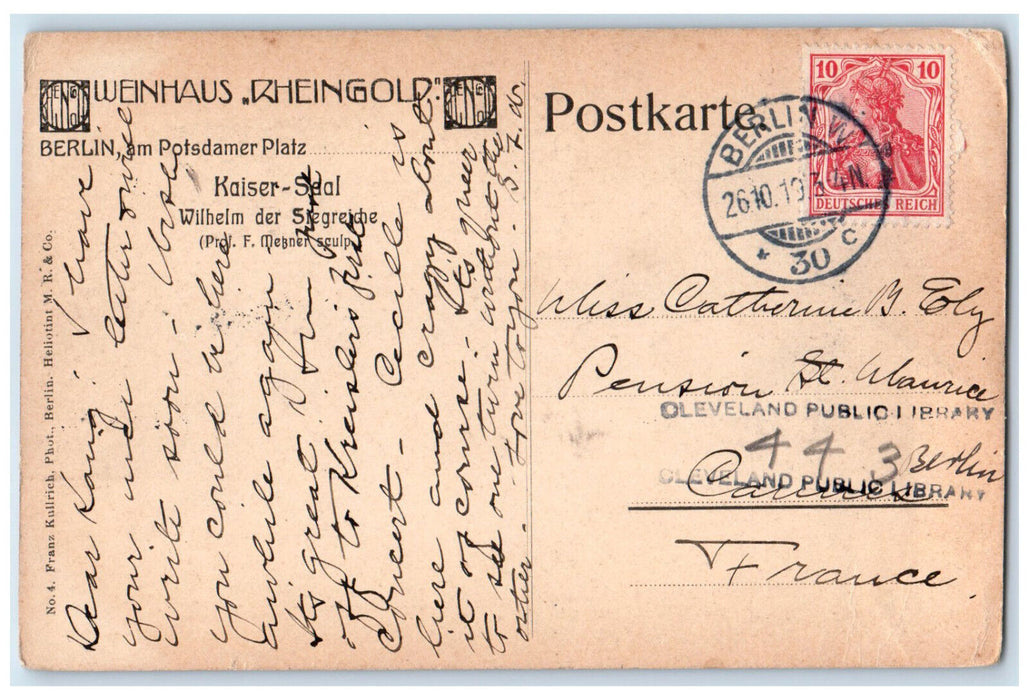 WEINHAUS „RHEINGOLD"
BERLIN, am Potsdamer Platz
Kaiser-Saal
Wilhelm der Siegreiche
(Prof. F. Metzner sculp.
No. 4. Franz Kullrich, Phot., Berlin. Heliotint M. R. & Co.
Dear I have
your nice letter &
write soon - Wish
you could be here
awhile again
It's great. Am just
off to Kreisler's first
Concert - Cecile is
here and crazy about
it of course. It's queer
to see one turn without the
other. Love to you.
Postkarte
10 10
DEUTSCHES REICH
BERLIN W
26.10.10. 3-4N.
* 30 c
Miss Catherine B. Ely
Pension St. Maurice
CLEVELAND PUBLIC LIBRARY
443 Berlin
CLEVELAND PUBLIC LIBRARY
Cannes
France